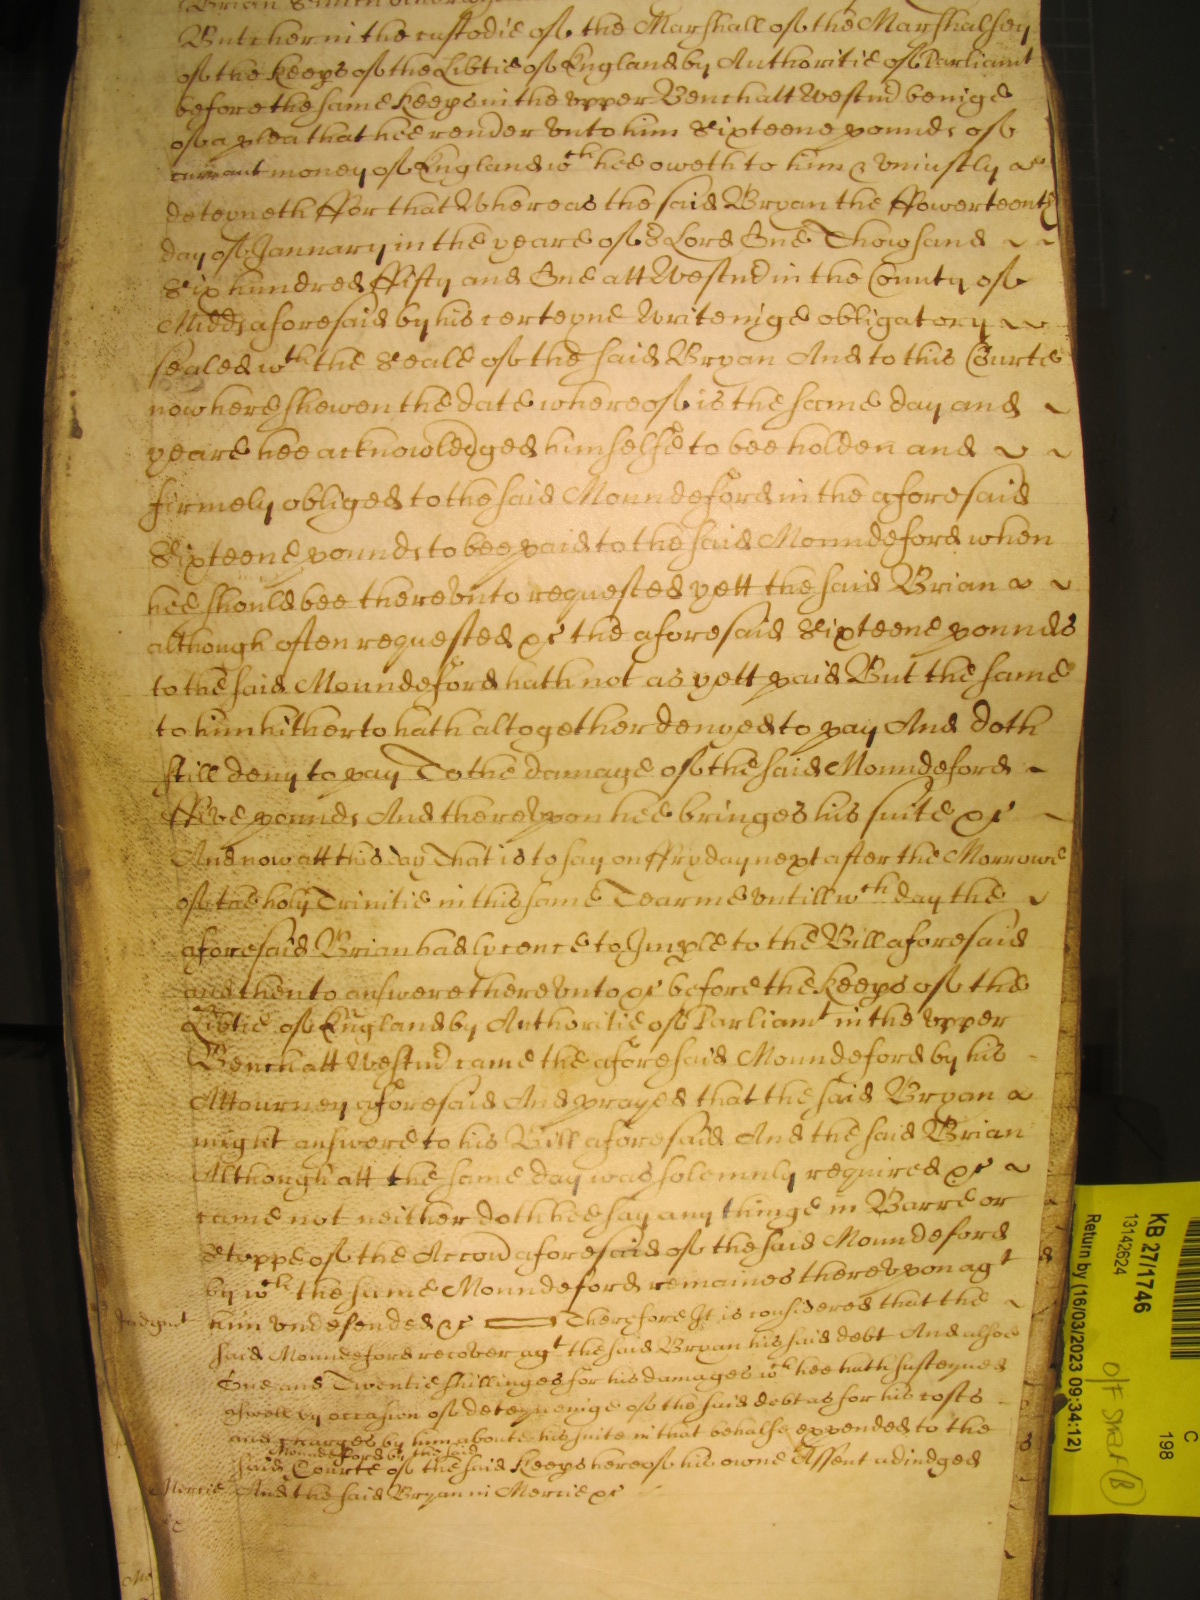 Brian Smith
Butcher in the custodie of the Marshall of the Marshalsey
of the Keeps of the Libtie of England by Authoritie of Parliamt
before the same Keeps in the vpper Bench att Westm̄ beinge
of a plea that hee render vnto him Sixteene pounds of
currant money of England wch hee oweth to him & vniustly
deteyneth ffor that Whereas the said Bryan the ffowerteenth
day of January in the yeare of or Lord One Thowsand
Six hundred ffifty and One att Westm̄ in the County of
Midds aforesaid by his certeyne Writeinge obligatory
sealed wth the Seale of the said Bryan And to this Courte
now here shewen the date whereof is the same day and
yeare hee acknowledged himselfe to bee holden and
firmely obliged to the said Moundeford in the aforesaid
Sixteene pounds to bee paid to the said Moundeford when
hee should bee therevnto requested yett the said Brian
although often requested &c the aforesaid Sixteene pounds
to the said Moundeford hath not as yett paid But the same
to him hitherto hath altogether denyed to pay And doth
still deny to pay To the damage of the said Moundeford
ffive pounds And therevpon hee bringes his suite &c
And now att this day That is to say on ffryday next after the Morrowe
of the holy Trinitie in this same Tearme vntill wch day the
aforesaid Brian had lycence to Imple to the Bill aforesaid
and then to answere therevnto &c before the Keeps of the
Libtie of England by Authoritie of Parliamt in the vpper
Bench att Westm̄ came the aforesaid Moundeford by his
Attourney aforesaid And prayed that the said Bryan
might answere to his Bill aforesaid And the said Brian
Although att the same day was solemnly required &c
came not neither doth hee say any thinge in Barre or
Stoppe of the Accōn aforesaid of the said Moundeford
by wch the same Moundeford remaines therevpon agt
Judgmt him vndefended &c Therefore It is considered that the
said Moundeford recover agt the said Bryan his said debt And alsoe
One and Twentie shillinges for his damages wch hee hath susteyned
aswell by occasion of deteyneinge of the said debt as for his costs
and charges by him aboute his suite in that behalfe expended to the
Moundeford by the said
said Courte of the said Keeps hereof his owne Assent adiudged
Mercie And the said Bryan in Mercie &c
KB 27/1746
13142624
Return by (16/03/2023 09:34:12)
C
198
O/F Smat (B)